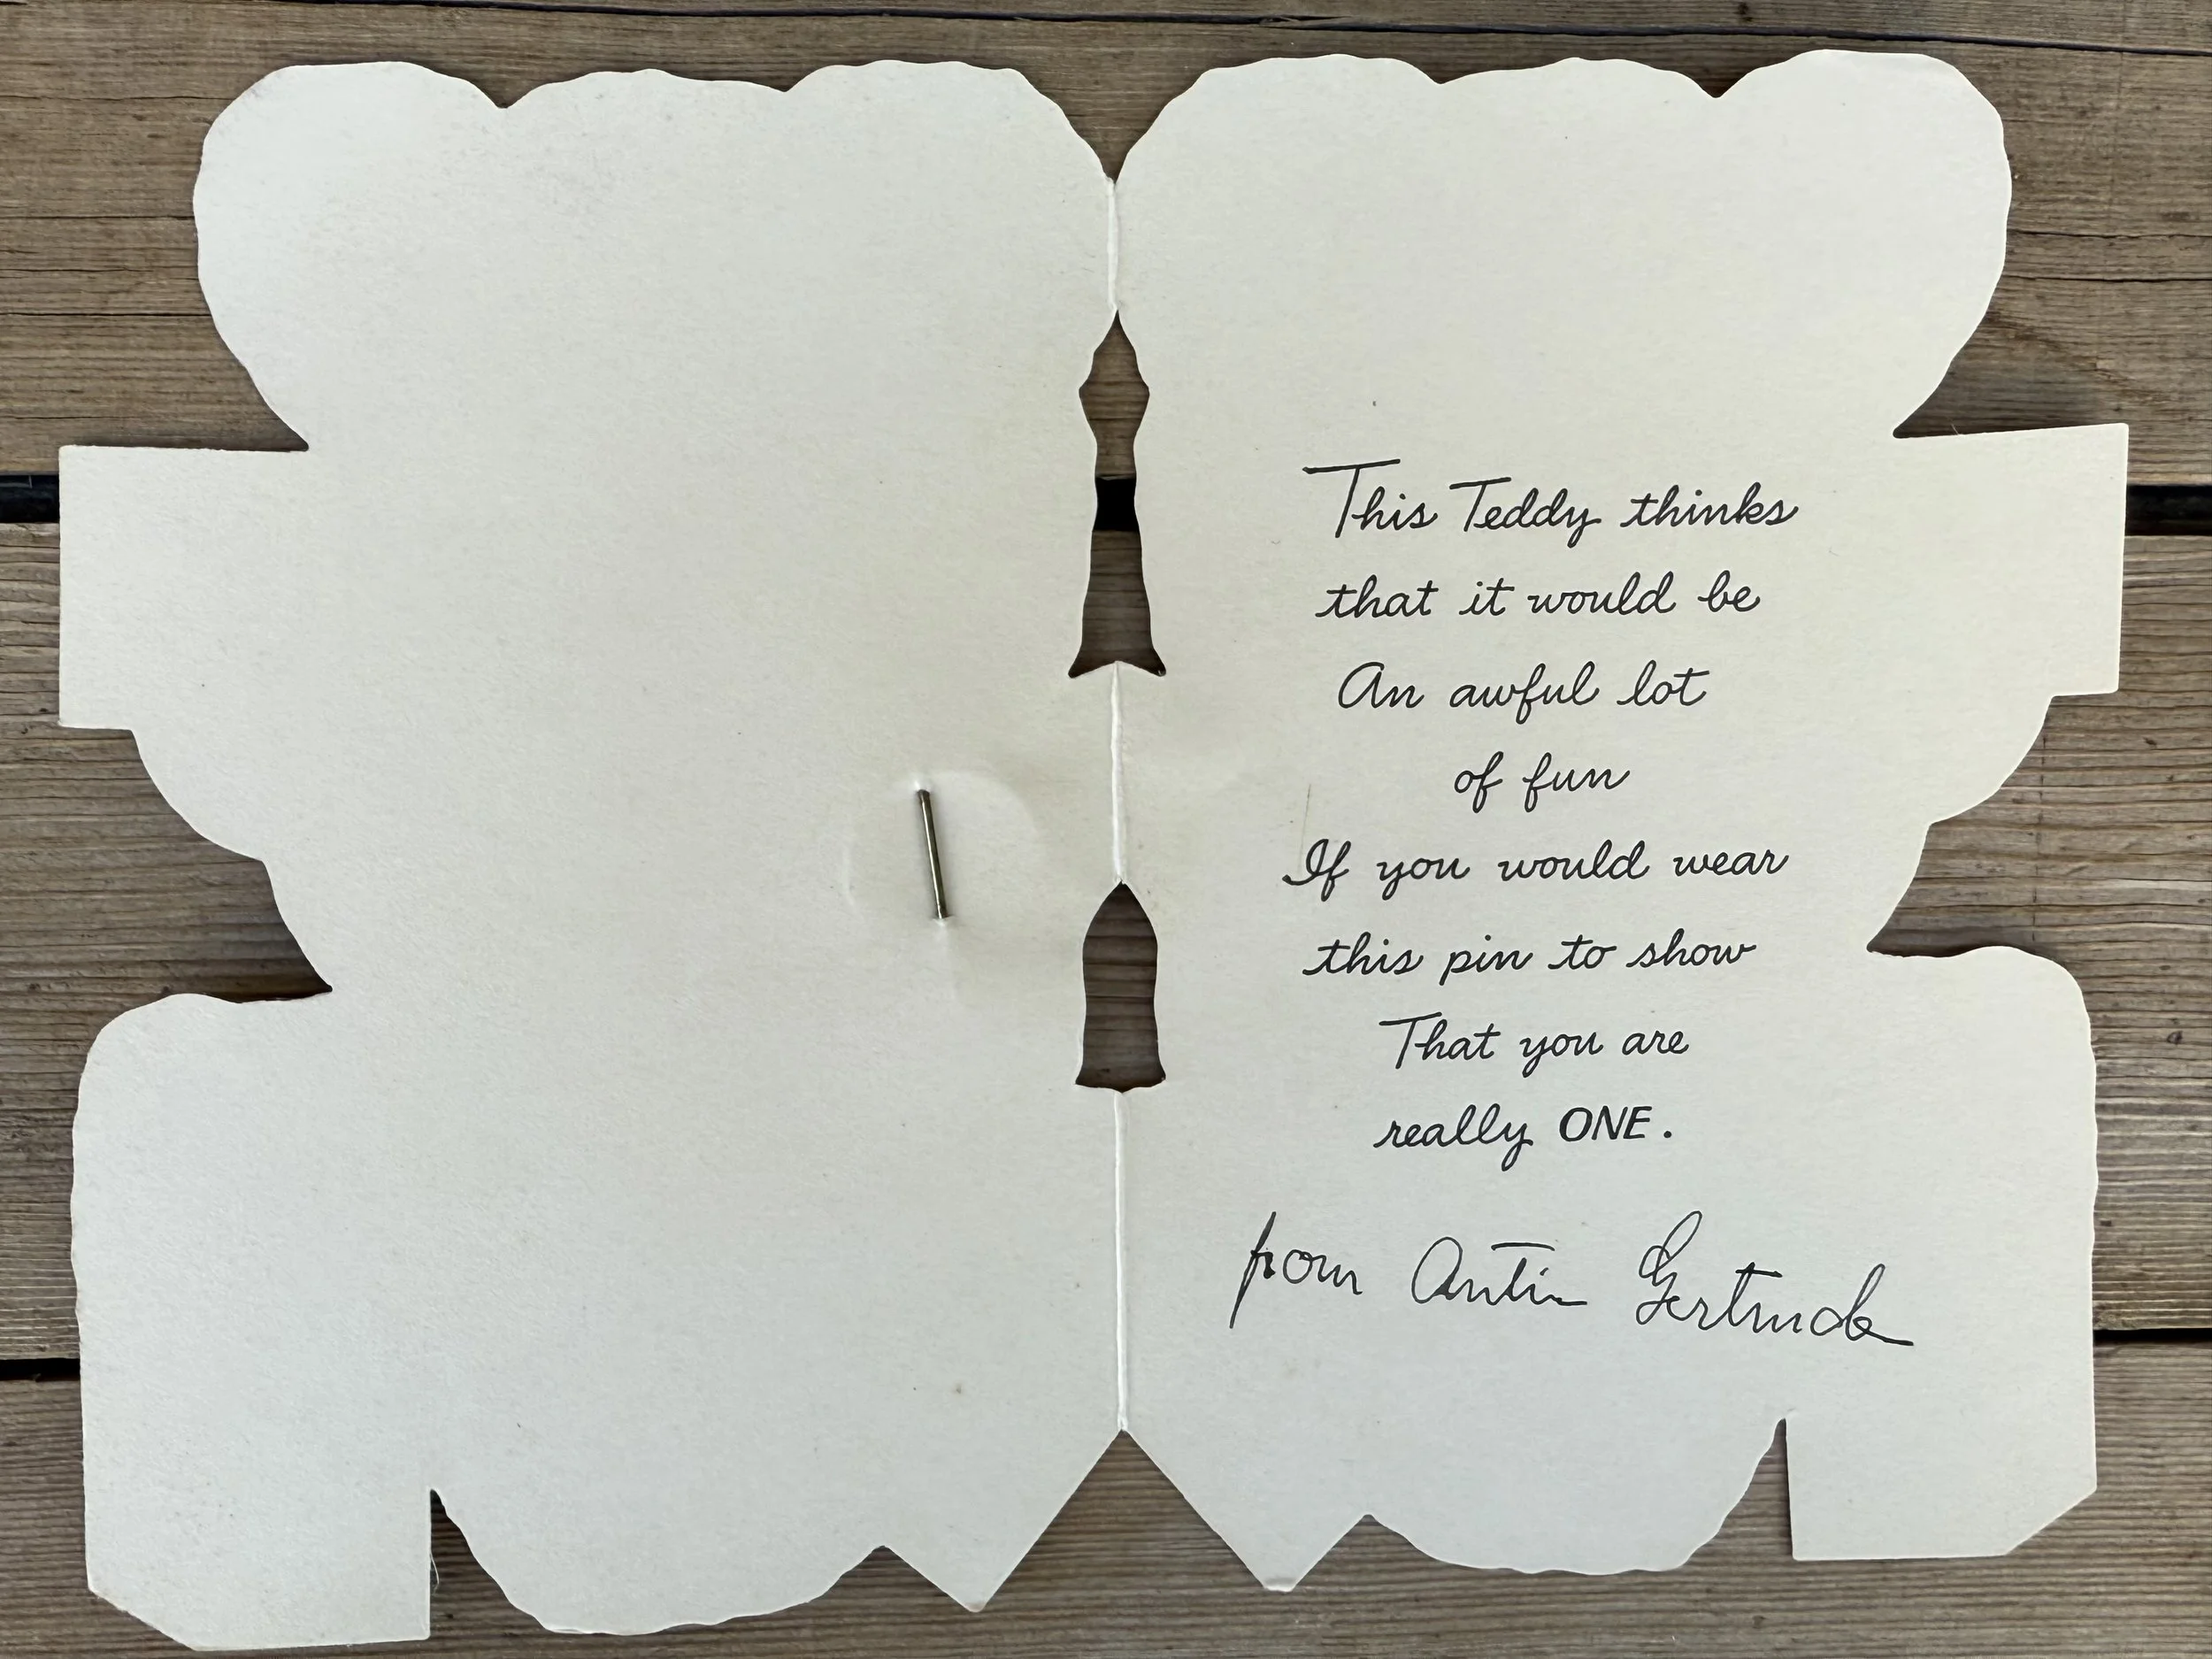 This Teddy thinks
that it would be
An awful lot
of fun
If you would wear
this pin to show
That you are
really ONE.
from Antie Gertrude